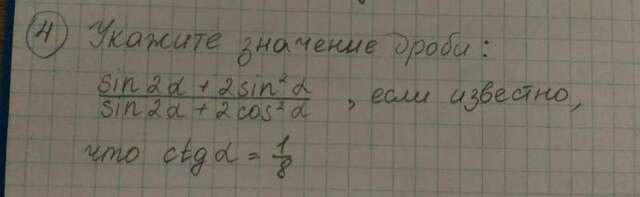 4 Укажите значение дроби:
sin 2α + 2 sin² α
sin 2α + 2 cos² α , если известно,
что ctg α = 1/8